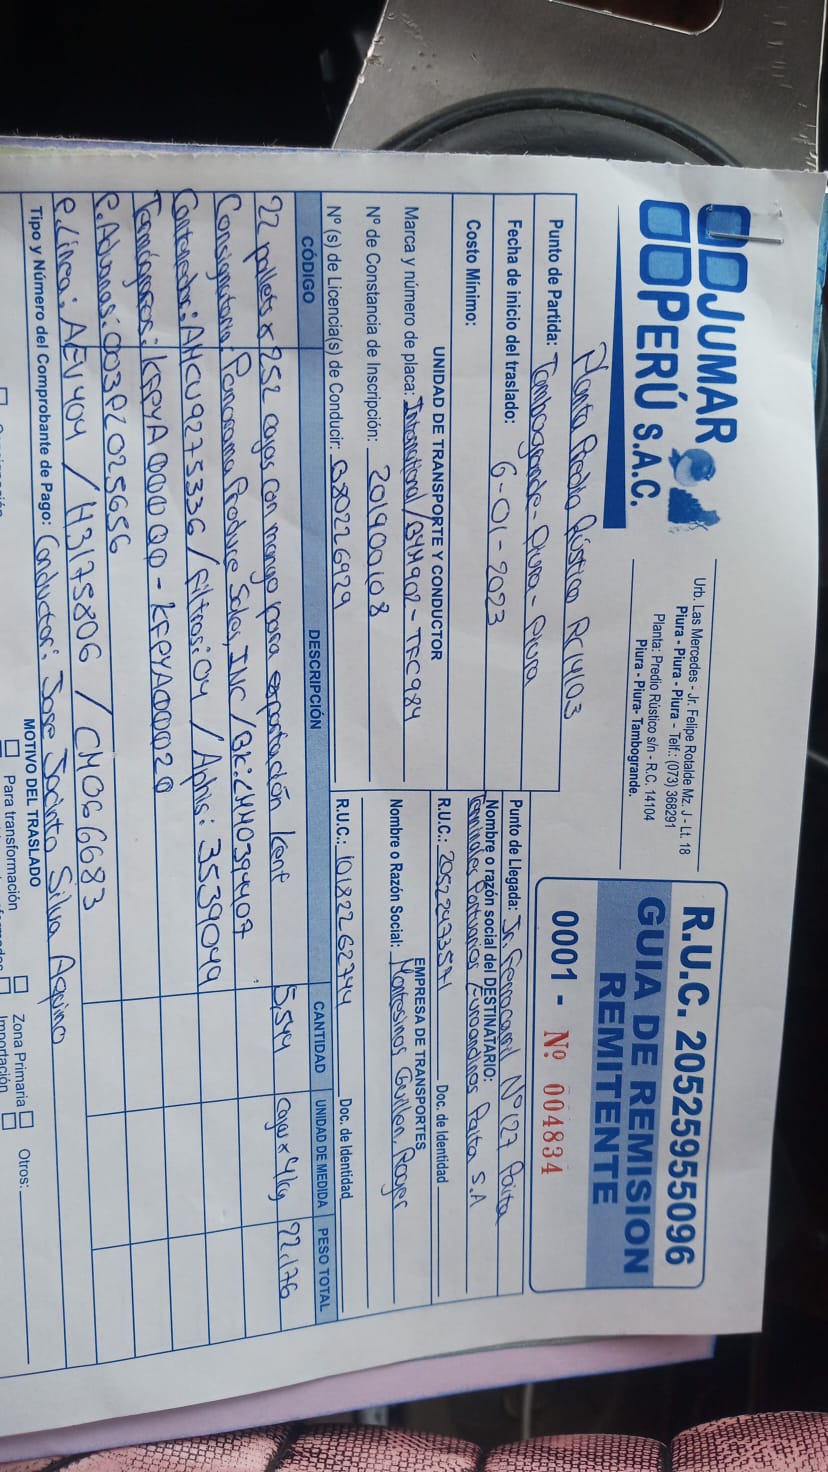 JUMAR
PERÚ S.A.C.
Urb. Las Mercedes - Jr. Felipe Rotalde Mz. J - Lt. 18
Piura - Piura - Piura - Telf.: (073) 368291
Planta: Predio Rústico s/n - R.C. 14104
Piura - Piura- Tambogrande.
R.U.C. 20525955096
GUIA DE REMISION
REMITENTE
0001 - Nº 004834
Planta Predio Rústico RC14103
Punto de Partida: Tambogrande - Piura - Piura
Fecha de inicio del traslado: 6-01-2023
Costo Mínimo:
Punto de Llegada: Jr. Ferrocarril Nº127 Paita
Nombre o razón social del DESTINATARIO:
Terminales Portuarios Euroandinos Paita S.A
R.U.C.: 20522473571 Doc. de Identidad
UNIDAD DE TRANSPORTE Y CONDUCTOR
Marca y número de placa: International/ - TFC984
Nº de Constancia de Inscripción: 201900108
Nº (s) de Licencia(s) de Conducir: Q80226929
EMPRESA DE TRANSPORTES
Nombre o Razón Social: Montesinos Guillen, Roger
R.U.C.: 10182262744 Doc. de Identidad
CÓDIGO DESCRIPCIÓN CANTIDAD UNIDAD DE MEDIDA PESO TOTAL
22 pallets x 252 cajas con mango para exportación kent 5,544 cajas x 4kg 22,176
Consignatario: Panorama Produce Sales, INC / BK:
Contenedor: / filtros: 04 / Aphis: 3539049
Termógrafos:
P. Aduanas: 003PL025656
P. Línea: AEV404 / H3175806 / CM066683
Tipo y Número del Comprobante de Pago: Conductor: Jose Jacinto Silva Aquino
MOTIVO DEL TRASLADO
Para transformación
Zona Primaria
Otros:
Importación